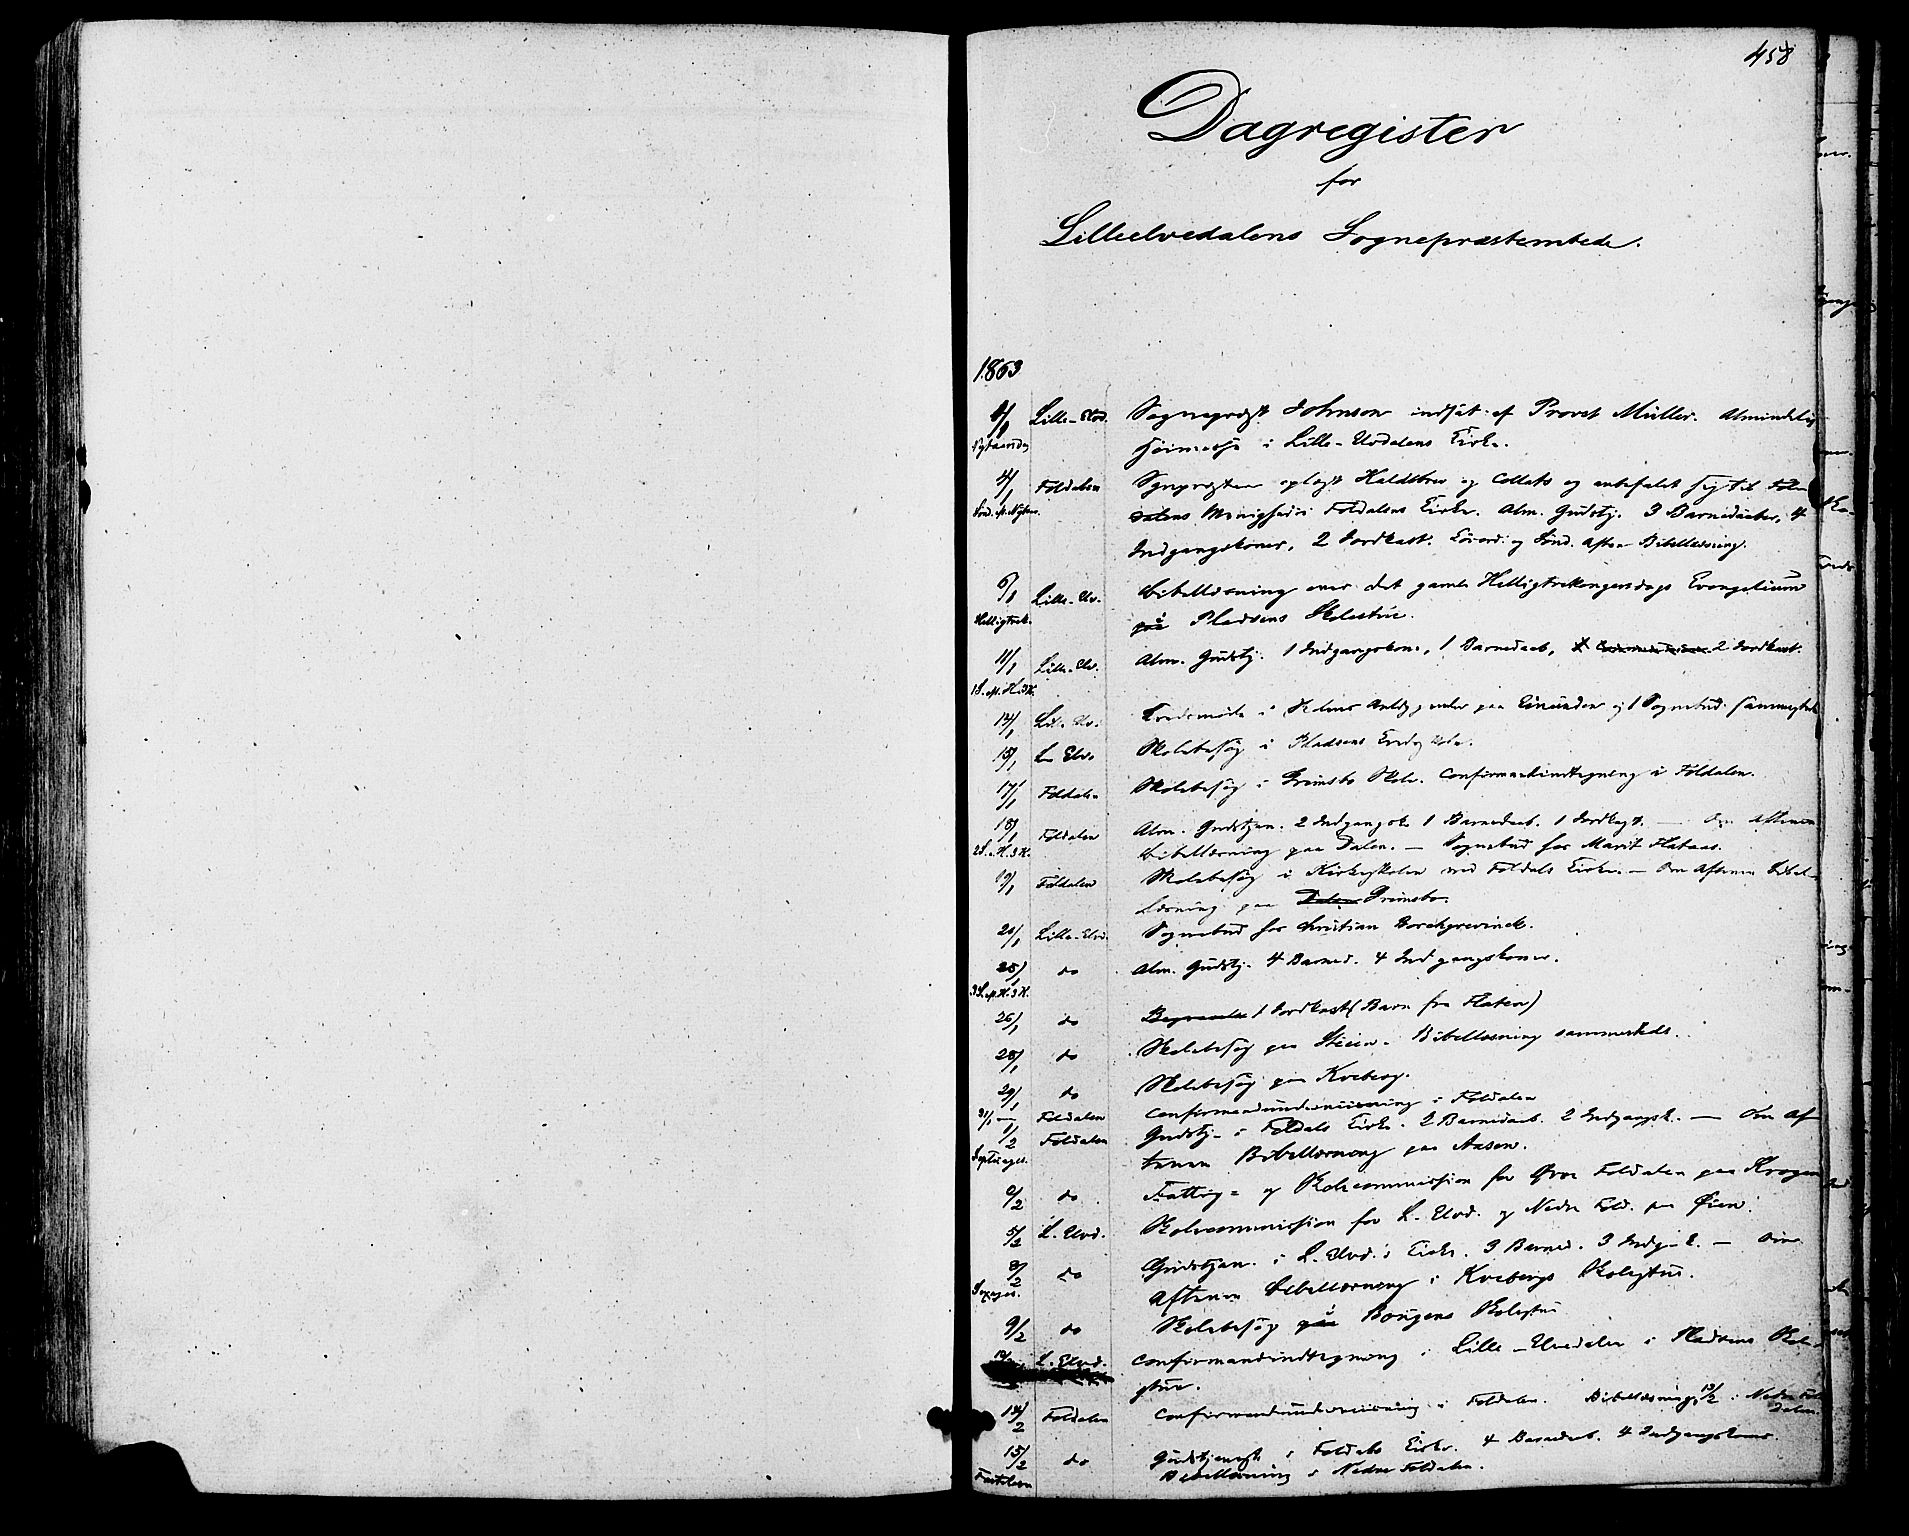 458
Dagregister
for
Lilleelvedalens Sognepræstembede.
1863
1/1 Lille-Elvd. Sognepræst Johnson indsat af Provst Müller. Almindelig
Nytaarsdag Høimesse i Lille-Elvdalens Kirke.
4/1 Foldalen Sognepræsten oplæste Kaldsbrev og Collats og anbefalet sig til Fol-
Sønd. e. Nytaar. dalens Menighed i Foldalens Kirke. Alm. Gudstj. 3 Barnedaaber, 4
Indgangskoner, 2 Jordkast. og Sønd. Aften Bibellæsning.
6/1 Lille-Elv. Bibellæsning over det gamle Helligtrekongersdags Evangelium
Helligtrek. paa Pladsens Skolestue.
11/1 Lille-Elv. Alm. Gudstj. 1 Indgangskone, 1 Barnedaab, 2 Jordkast.
1 S. e. H. 3 K.
13/1 Lill. Elv. i paa og 1 Sognebud sammesteds
15/1 L. Elvd. Skolebesøg i Pladsens Kredsskole.
17/1 Foldalen Skolebesøg i Grimsbo Skole. Confirmandindtegning i Foldalen.
18/1 Foldalen Alm. Gudstjen. 2 Indgangsk. 1 Barnedaab. 1 Jordkast. — Om Aftenen
2 S. e. H. 3 K. Bibellæsning paa Dalen. — Sognebud for Marit Flataas.
19/1 Foldalen Skolebesøg i Kirkeskolen ved Foldals Kirke. — Om Aftenen Bibel-
læsning paa Dalen Grimsbo.
20/1 Lille-Elvd. Sognebud for Christian Borchgrevinck.
25/1 do Alm. Gudstj. 4 Barned. 4 Indgangskoner.
3 S. e. H. 3 K.
26/1 do Begravelse 1 Jordkast (Barn fra Flaten)
28/1 do Skolebesøg paa Steien. Bibellæsning sammesteds.
29/1 do Skolebesøg paa Kveberg.
31/1 Foldalen Confirmandunderviisning i Foldalen
1/2 Foldalen Gudstj. i Foldals Kirke. 2 Barnedaab. 2 Indgangsk. — Om Af-
Septuages. tenen Bibellæsning paa Aasen.
/2 do Fattig- og Skolecommission for Øvre Foldalen paa Krogen
5/2 L. Elvd. Skolecommission for L. Elvd. og Nedre Fold. paa Øien.
8/2 do Gudstjen. i L. Elvd.s Kirke. 3 Barned. 3 Indg.k. — Om
Sexages. Aftenen Bibellæsning i Kvebergs Skolestue.
9/2 do Skolebesøg paa Borgens Skolestue
L. Elvd. Confirmandindtegning i Lille-Elvedalen i Pladsens Skole-
stue.
14/2 Foldalen Confirmandunderviisning i Foldalen. Bibellæsning 13/2 i Nedre Fol-
dalen.
15/2 do Gudstjeneste i Foldals Kirke. 4 Barnedaab. 4 Indgangskoner
Fastelavn Bibellæsning i Nedre Foldalen.